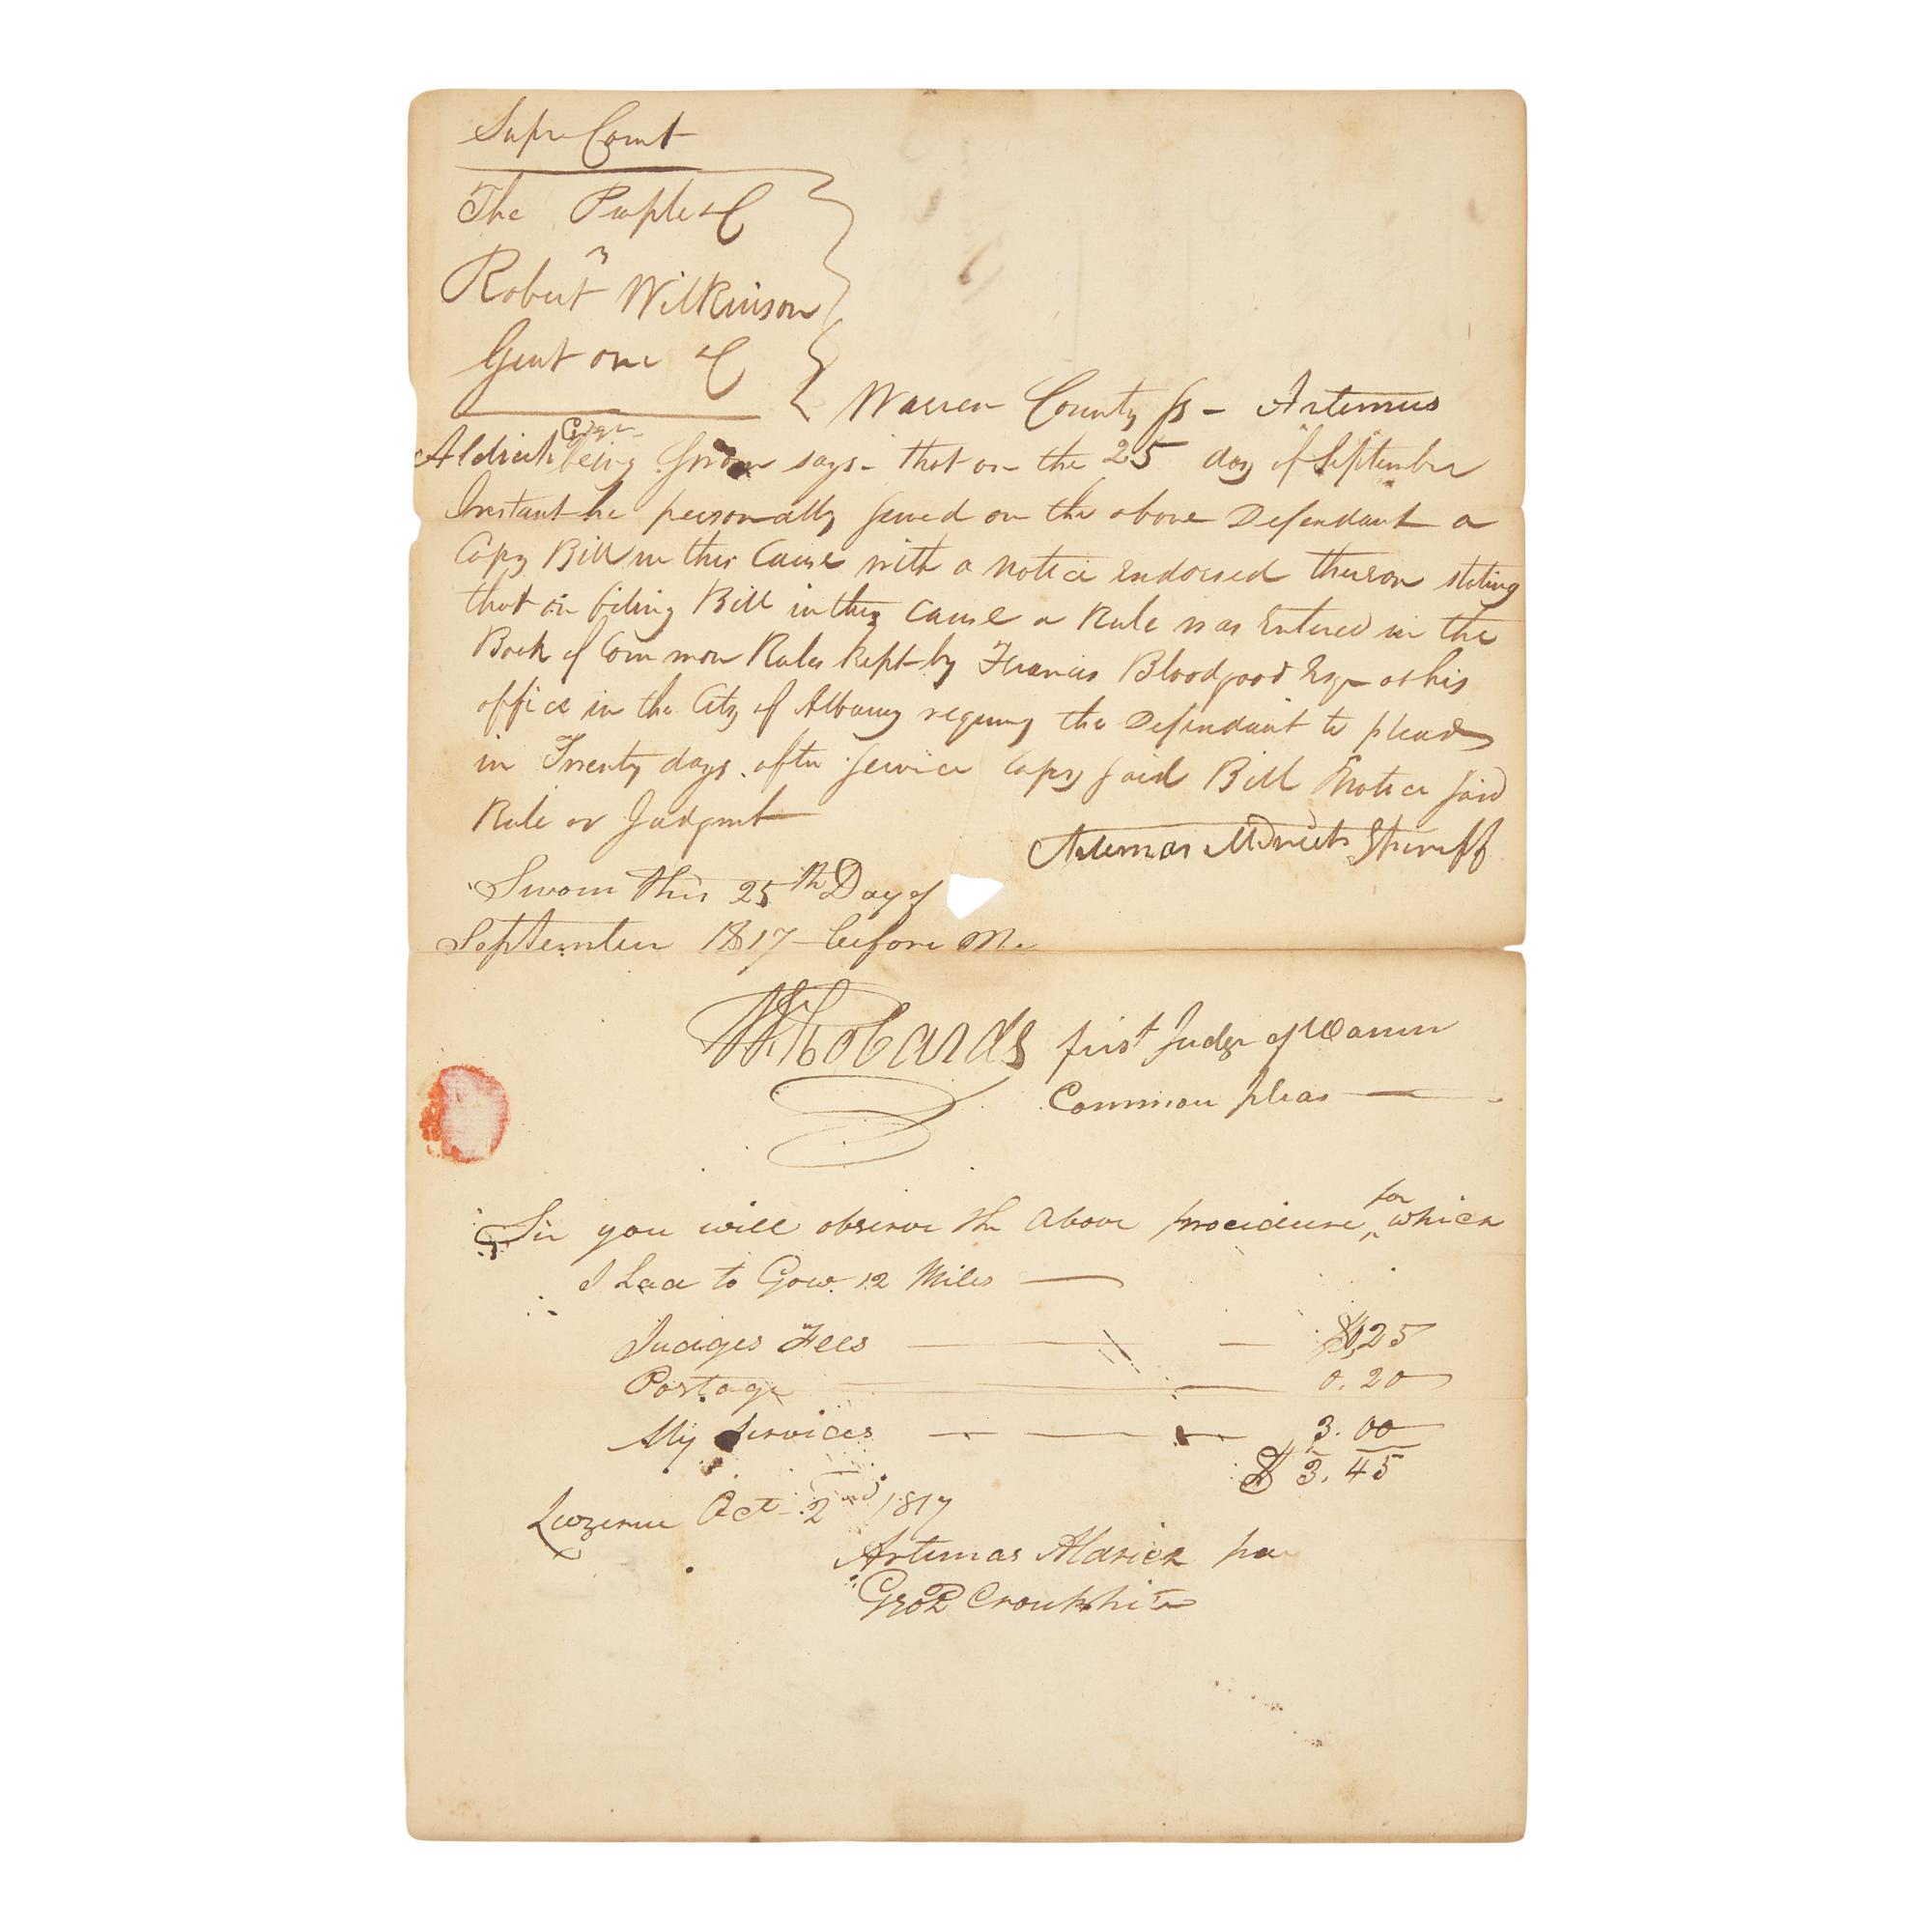 Supr Court
The People &c
vs
Robert Wilkinson
Gent one &c
Warren County ss - Artemus
Aldrich Esqr being sworn says - that on the 25 day of September
Instant he personally served on the above Defendant a
Copy Bill in this Cause with a notice endorsed thereon stating
that on filing Bill in this cause a Rule was Entered in the
Book of Common Rules kept by Francis Bloodgood Esqr at his
office in the City of Albany requring the Defendant to plead
in Twenty days after service Copy said Bill & notice said
Rule or Judgmt
Artemas Aldrich Sheriff
Sworn this 25th Day of
September 1817 before Me
Robards first Judge of Warren
Common pleas
Sir you will observe the above procedure, for which
I had to Gow 12 Miles
Judges Fees $0,25
Postage 0.20
My Services 3.00
$ 3.45
Luzerne Oct 2nd 1817
Artemas Aldrich per
Geo P